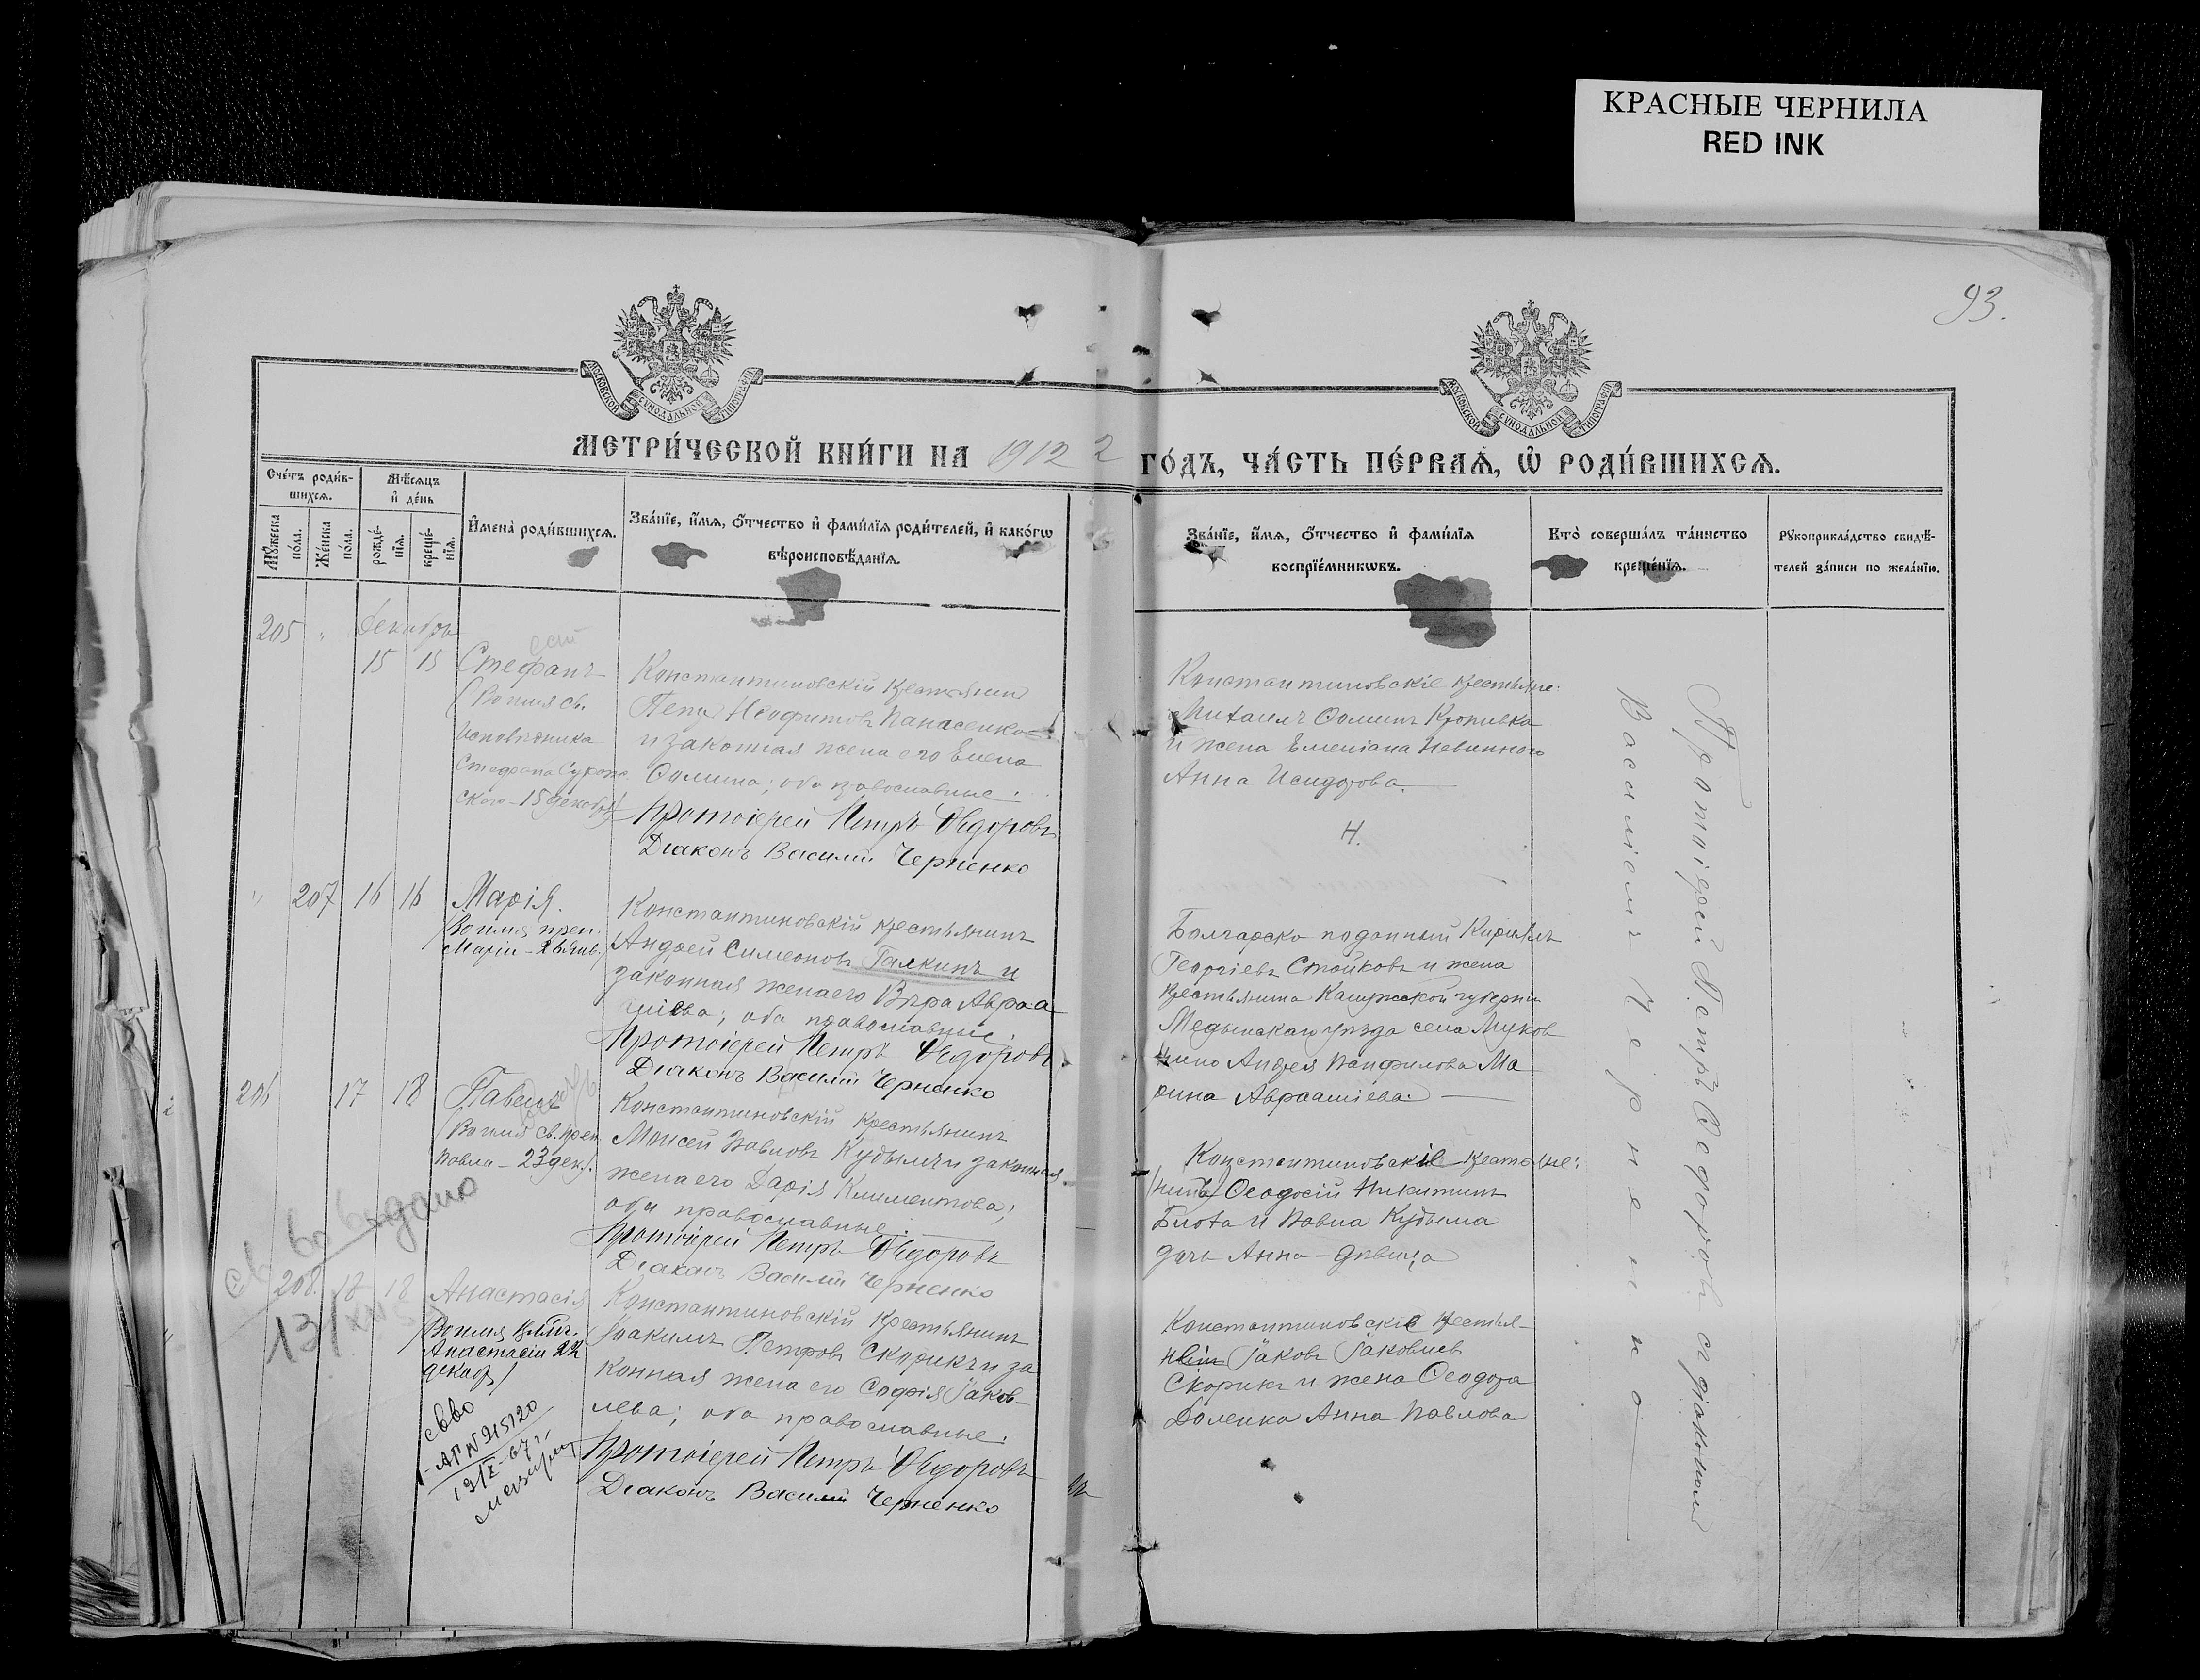 КРАСНЫЕ ЧЕРНИЛА
RED INK
93.
МОСКОВСКОЙ СѴНОДАЛЬНОЙ ТИПОГРАФІИ
МОСКОВСКОЙ СѴНОДАЛЬНОЙ ТИПОГРАФІИ
МЕТРИ́ЧЕСКОЙ КНИ́ГИ НА 1912 2 ГО́ДЪ, ЧА́СТЬ ПЕ́РВАѦ, Ѡ҆ РОДИ́ВШИХСѦ.
Сче́тъ роди́в-
шихсѧ.
Мѣ́сѧцъ
и҆ де́нь
Мꙋ́жеска
по́ла.
Же́нска
по́ла.
рожде́-
нїѧ.
креще́-
нїѧ.
И҆мена̀ роди́вшихсѧ.
Зва́нїе, и҆́мѧ, ѻ҆́тчество и҆ фами́лїѧ роди́телей, и҆ како́гѡ
вѣроисповѣ́данїѧ.
Зва́нїе, и҆́мѧ, ѻ҆́тчество и҆ фами́лїѧ
воспрїе́мникѡвъ.
Кто̀ соверша́лъ та́инство
креще́нїѧ.
Рꙋкоприкла́дство свидѣ́-
телей за́писи по жела́нїю.
205 " Декабрь
15 15 Стефанъ
(Во имя св.
исповѣдника
Стефана Сурож
скаго - 15 декабря)
Константиновскій крестьянинъ
Петръ Неофитовъ Панасенко
и законная жена его Елена
Ѳомина; оба православные.
Протоіерей Петръ Ѳедоровъ
Діаконъ Василій Черненко
Константиновскіе крестьяне:
Михаилъ Ѳоминъ Кропивка
и жена Емеліана Невинного
Анна Исидорова.
Н.
" 207 16 16 Марія.
(Во имя преп.
Маріи - Янв.)
Константиновскій крестьянинъ
Андрей Симеоновъ Галкинъ и
законная жена его Вѣра Авраа
міева; оба православные.
Протоіерей Петръ Ѳедоровъ
Діаконъ Василій Черненко
Болгарско подданный Кириллъ
Георгіевъ Стойковъ и жена
крестьянина Калужской губерніи
Медынскаго уѣзда села
Андрея Панфилова Ма
рина Авраамiева.
206 17 18 Павелъ
(Во имя св. преп.
Павла - 23 дек.)
Константиновскій крестьянинъ
Моисей Павловъ Кудымъ и законная
жена его Дарія Климентова;
оба православные.
Протоіерей Петръ Ѳедоровъ
Діаконъ Василій Черненко
Константиновскіе крестьяне:
Ѳеодосій Никитинъ
Блоха и Павла Кудыма
дочь Анна - дѣвица
Св во выдано
208. 18 18 Анастасія
(Во имя влмч.
Анастасіи 22
декаб.)
Константиновскій крестьянинъ
Іоакимъ Петровъ Скорикъ и за
конная жена его Софія Іаков-
лева; оба православные.
Протоіерей Петръ Ѳедоровъ
Діаконъ Василій Черненко
Константиновскіе крестья-
Іаковъ Іаковлевъ
Скорикъ и жена Ѳеодора
Доленка Анна Павлова
13/XII
св-во
1-АП № 215120
Протоіерей Петръ Ѳедоровъ съ діакономъ
Василіемъ Черненко